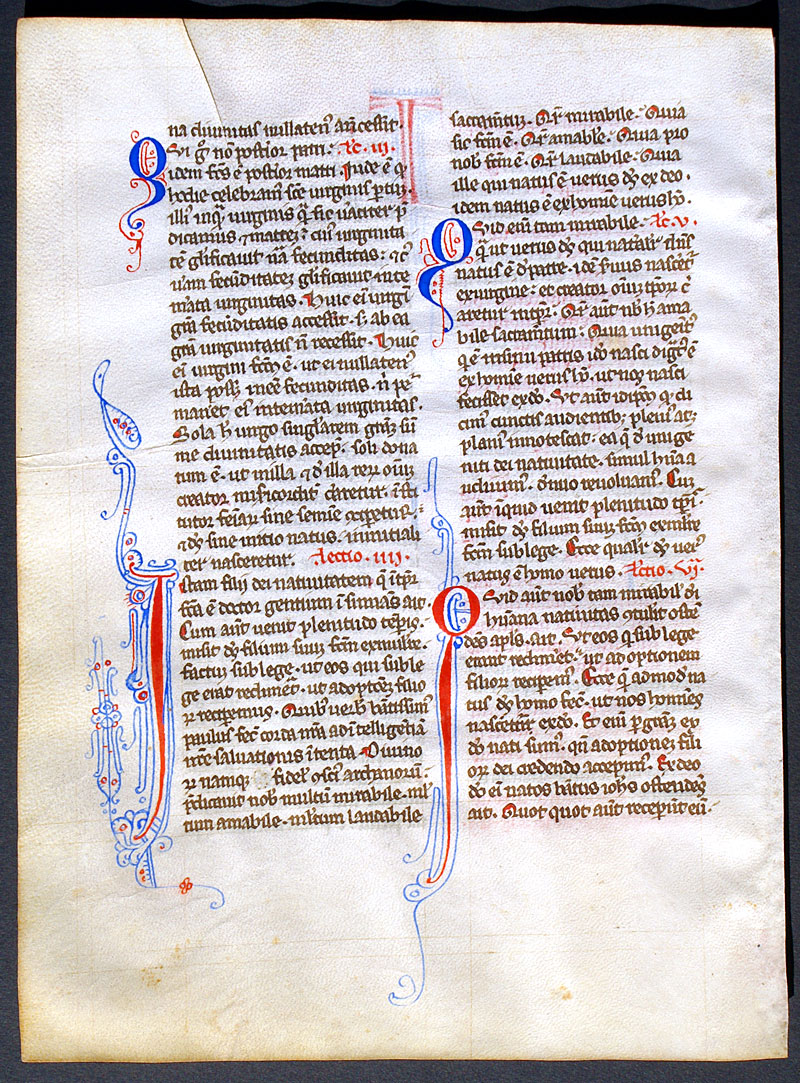 na diuinitas nullaten᷒ acc̄essit.
Qui g̊ nō post̾ior patri. Lc̄. iii.
idem fcs̄ ē posterior matri. Inde ē q̊
hodie celebram᷒ sc̄e uirginis partū.
illi᷒ inq̄ uirginis q̄ sic ueraciter p̄
dicamus & matrez. cui᷒ uirginita
tē gl̄ificauit nā fecunditas.
uam fecūditatez gl̄ificauit inte
m̾ata uirginitas. Huic eī uirgi
gr̄a fecūditatis accessit. s ab ea
gr̄a uirginitatis n̄ recessit. Huic
eī uirgini fcm̄ ē. ut ei nullaten᷒
ista poss; inēe fecunditas. n̄ p̄e
maner; ei intemerata uirginitas.
Sola h̄ uirgo singlarem gr̄az sūi
me diuinitatis accep̄. soli dona
tum ē. ut in illa & d̾ illa rerr oīuz
creator mis̾icordit̾ c̄aretur.
tutor feīarr sine semīe
& d̾s sine initio natus. initiali
ter nasceretur. Lectio. iiii.
Istam filii dei natiuitatem q̄ itp̄r
fc̄a ē doctor gentium īsinuās ait.
Cum aut̄ uenit plenitudo tēpis.
misit d̾s filium suū fcm̄ ex muliere.
factū sub lege. ut eos qui sub le
ge erāt redim̄et. ut adoptōez filio
rr recip̄emus. Quib᷒ uerb̾ b̄atissim᷒
paulus fec̄ corda nr̄a ad ītelligētiā
nr̄e saluationis ītenta. Diuino
rr namq; fidel̾ ɔsci᷒ archanorū.
p̄dicauit nob̾ multū mirabile. ml̄
tum amabile. ml̄tum laudabile
sacram̄tū. Qr̄ mirabile. Quia
sic fcm̄ ē. Qr̄ amabl̄e. Quia pro
nob̾ fcm̄ ē. Qr̄ laudabile. Quia
ille qui natus ē uerus d̾s ex deo.
idem natus ē ex hoīe uerus h̄o.
Quid eni̅ tam mirabile. Lc̄. V.
q̄ ut uerus d̾s qui natal̾r
natus ē d̾ patre. idē s̄ uus nascer̄
ex uirgine. et creator oīuz tp̄orr c̄
aretur in tp̄r. Qr̄ aut̄ nb̾ h̾ ama
bile sacramentum. Quia unigenit᷒
q̄ ē in sinu patris id̊ nasci digt᷒ ē
ex hoīe uerus h̄o. ut nos nasci
fecisset ex d̊. Vt aut̄ id ip̄m q̄ di
cim᷒ cunctis audientib; pleni᷒ ac;
plani᷒ innotescat. ea q̄ d̾ unige
niti dei natiuitate. simul
uidiuim᷒. denuo reuoluam᷒. Cuz
aut̄ inquid uenit plenitudo tp̄is.
misit d̾s filium suū fcm̄ ex mul̾ie
fcm̄ sub lege. Ecce qualir d̾s uer᷒
natus ē homo uerus. Lectio. VI.
Quid aut̄ nob̾ tam mirabil̾ d̄i
humana natiuitas ɔtulit ostē
dēs apl̄s. ait. Vt eos q̊ sub lege
erant redim̄et. ut adoptionem
filiorr recip̄em᷒. Ecce q̄ admod̾ na
tus d̾s homo fec̄. ut nos hom̄es
nascēmr ex d̊o. Et eni̅ p̄ gr̄az ex
d̊ nati sum᷒. q̄n adoptionez fili
orr dei credendo accepim᷒. Ex deo
d̊ eī natos b̄atus ioh̄s ostendēs
ait. Quot quot aut̄ recep̄ūt eū.